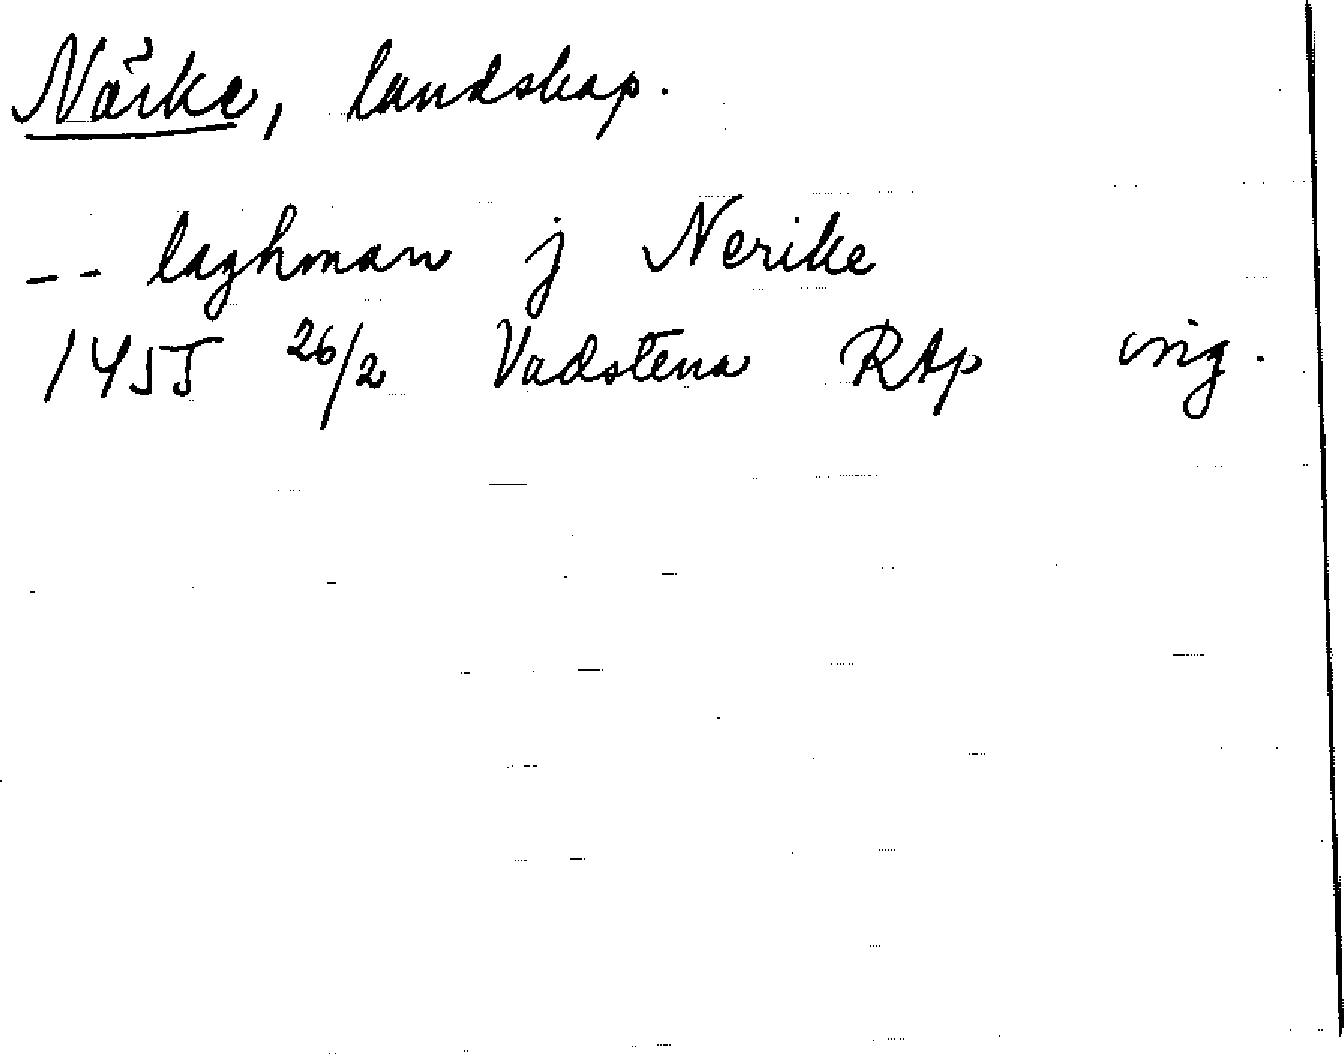 Närke, landskap.
-- laghman j Nerike
1455 26/2 Vadstena RAp orig.